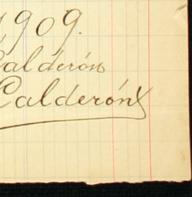 1909.
Calderón
Calderón